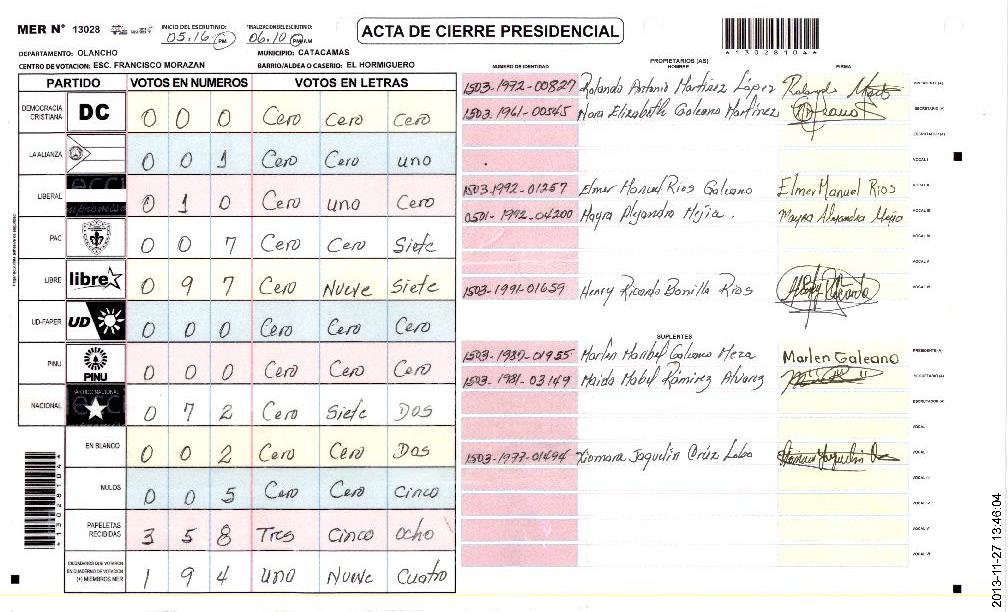 MER N° 13028
INICIO DEL ESCRUTINIO: 05.16 PM
FINALIZACION DEL ESCRUTINIO: 06.10 PM AM
ACTA DE CIERRE PRESIDENCIAL
*13028104*
DEPARTAMENTO: OLANCHO MUNICIPIO: CATACAMAS
CENTRO DE VOTACION: ESC. FRANCISCO MORAZAN BARRIO/ALDEA O CASERIO: EL HORMIGUERO
PARTIDO VOTOS EN NUMEROS VOTOS EN LETRAS
DEMOCRACIA CRISTIANA DC 0 0 0 Cero Cero Cero
LA ALIANZA 0 0 1 Cero Cero uno
LIBERAL 0 1 0 Cero uno Cero
PAC 0 0 7 Cero Cero Siete
LIBRE libre 0 9 7 Cero Nueve Siete
UD-FAPER UD 0 0 0 Cero Cero Cero
PINU PINU 0 0 0 Cero Cero Cero
NACIONAL PARTIDO NACIONAL 0 7 2 Cero Siete Dos
EN BLANCO 0 0 2 Cero Cero Dos
NULOS 0 0 5 Cero Cero Cinco
PAPELETAS RECIBIDAS 3 5 8 Tres Cinco Ocho
CIUDADANOS QUE VOTARON EN CUADERNO DE VOTACION (+) MIEMBROS MER 1 9 4 uno Nueve Cuatro
*13028104*
PROPIETARIOS (AS)
NUMERO DE IDENTIDAD NOMBRE FIRMA
1503-1972-00827 Rolando Antonio Martinez López PRESIDENTE (A)
1503-1961-00545 Nora Elizabeth Galeano Martinez SECRETARIO (A)
ESCRUTADOR (A)
VOCAL I
1503-1992-01257 Elmer Manuel Rios Galeano Elmer Manuel Rios VOCAL II
0501-1992-04200 Mayra Alejandra Mejia. Mayra Alejandra Mejia VOCAL III
VOCAL IV
VOCAL V
1503-1991-01659 Henry Ricardo Bonilla Rios VOCAL VI
SUPLENTES
1503-1987-01955 Marlen Maribel Galeano Meza Marlen Galeano PRESIDENTE (A)
1503-1981-03149 Maida Mabel Ramirez Alvarez SECRETARIO (A)
ESCRUTADOR (A)
VOCAL
1503-1977-01494 Xiomara Jaquelin Crúz Lobo VOCAL II
VOCAL III
VOCAL IV
VOCAL V
VOCAL VI
2013-11-27 13:46:04